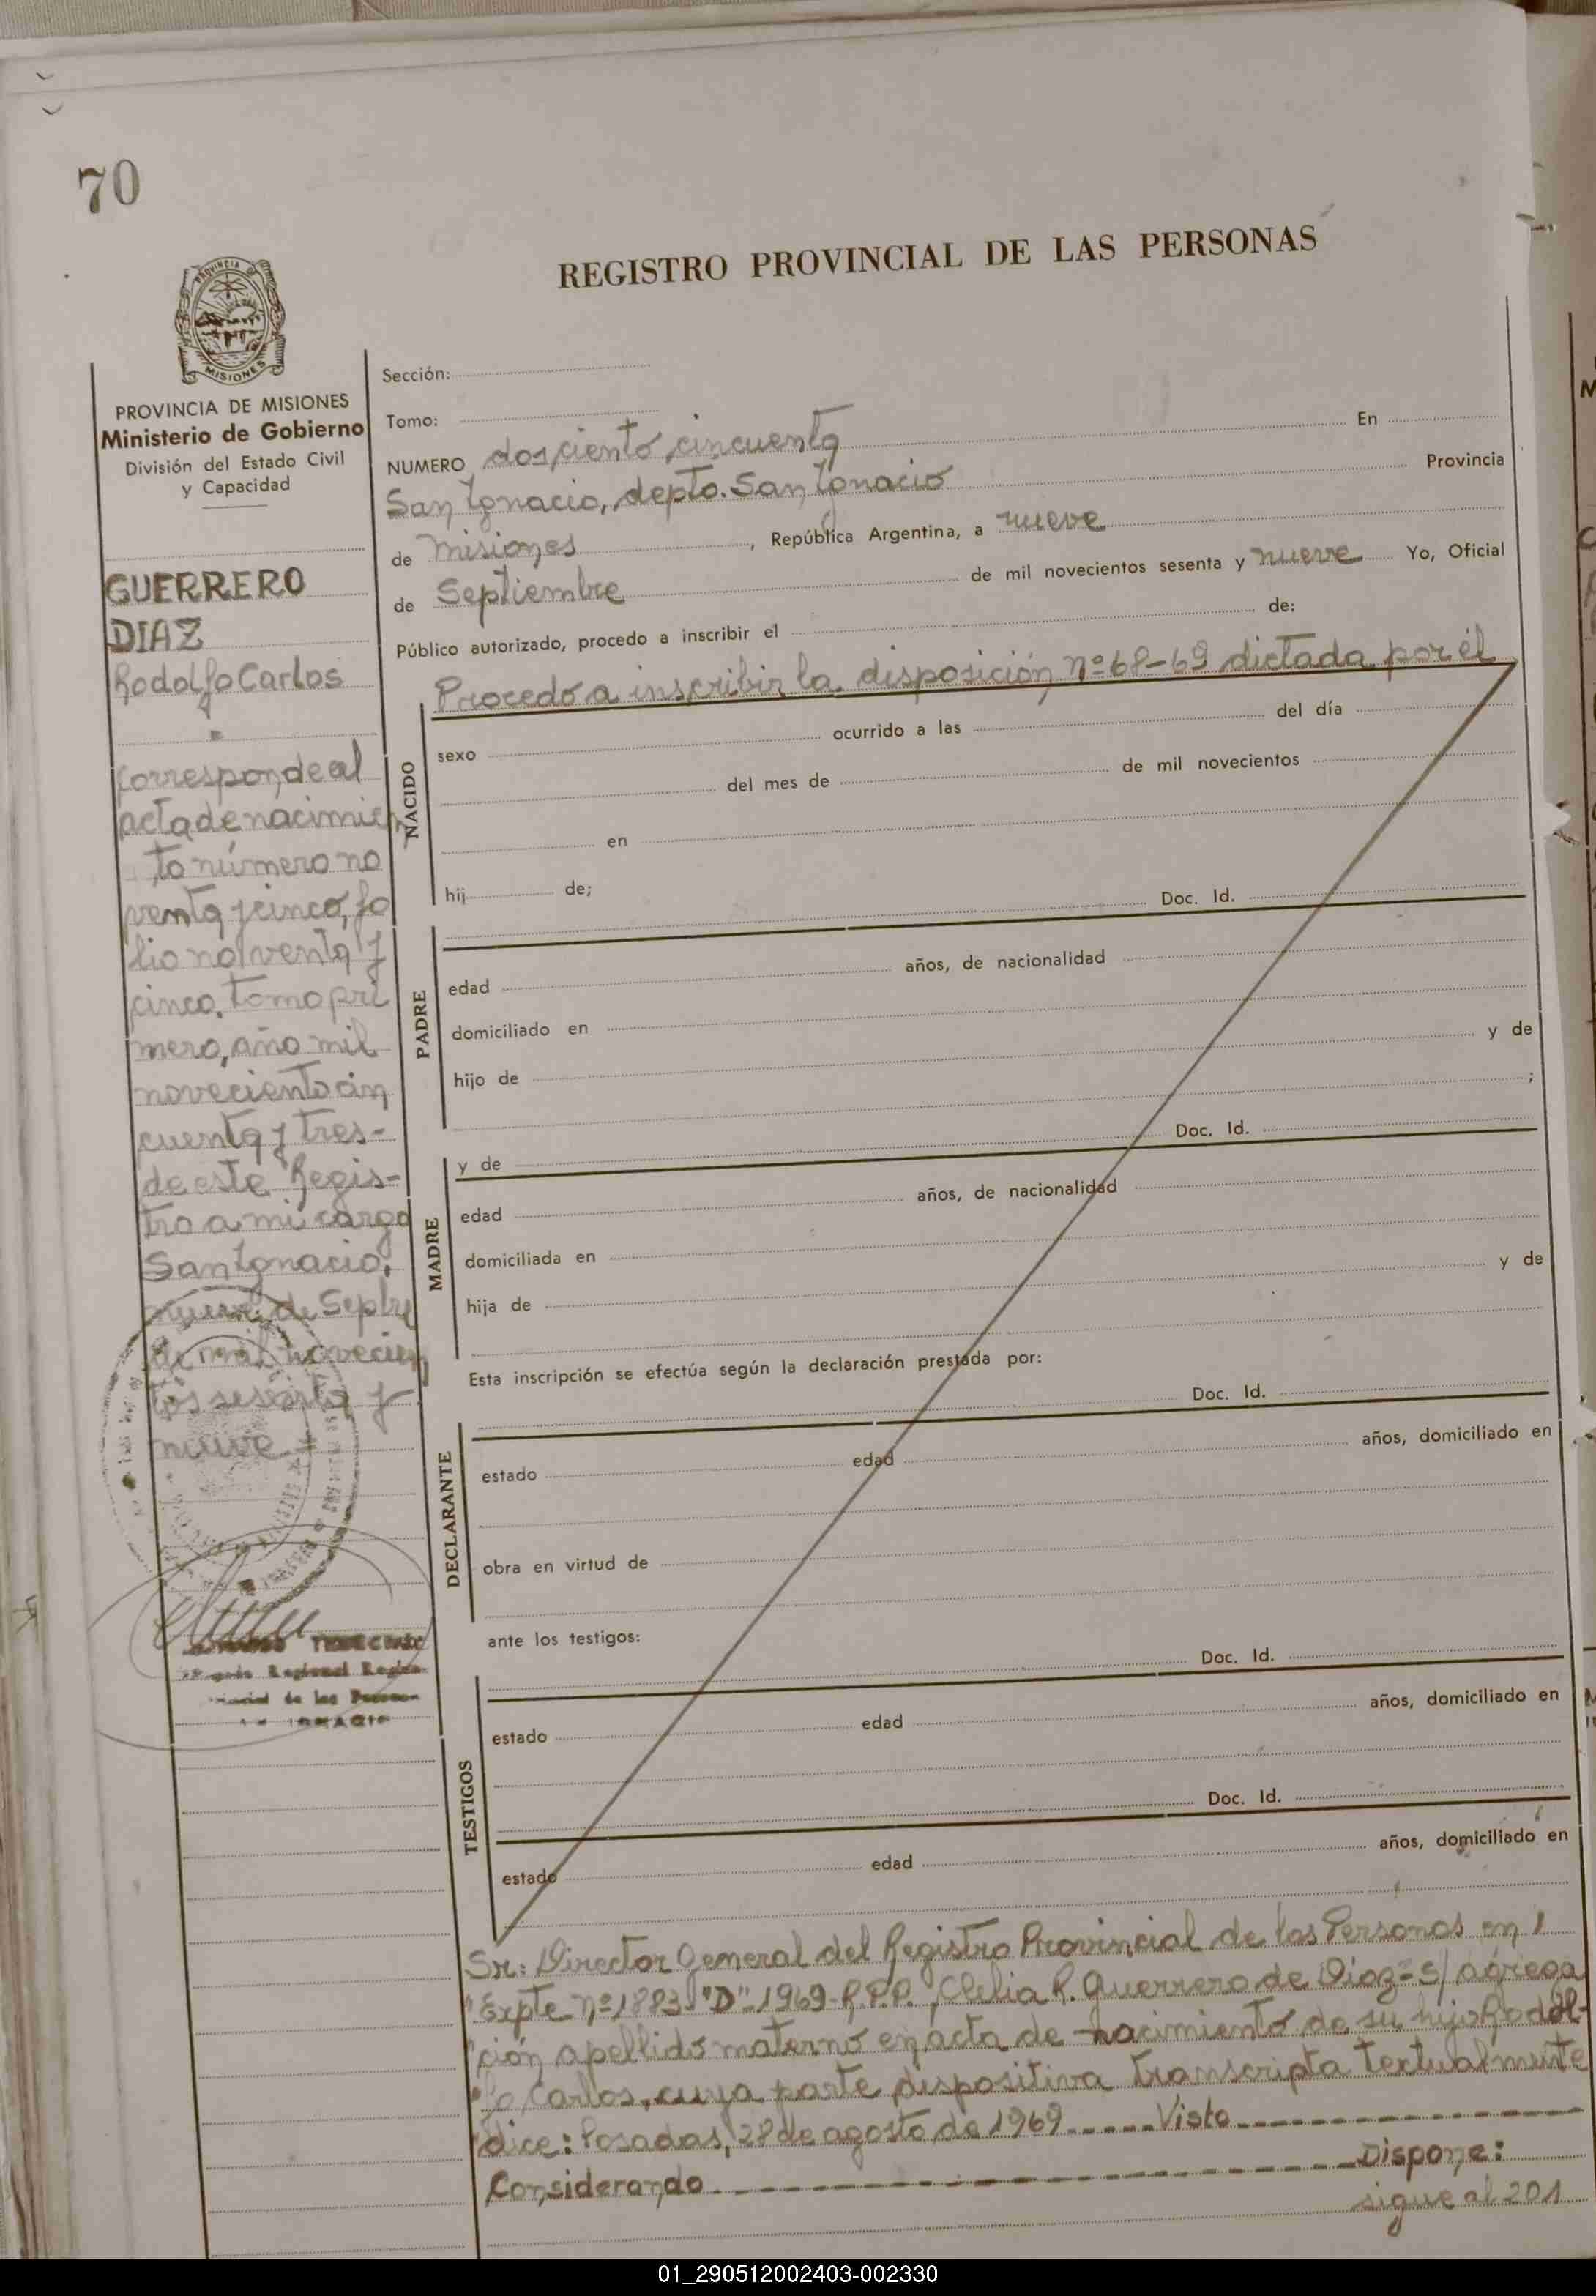 70
REGISTRO PROVINCIAL DE LAS PERSONAS
PROVINCIA DE MISIONES
Ministerio de Gobierno
División del Estado Civil
y Capacidad
GUERRERO
DIAZ
Rodolfo Carlos
Corresponde al
acta de nacimien
to número no
venta y cinco, fo
lio noventa y
cinco, tomo pri
mero, año mil
noveciento cin
cuenta y tres-
de este Regis-
tro a mi cargo
San Ignacio,
nueve de Septbre
de mil novecien
tos sesenta y
nueve
Sección:
Tomo:
NUMERO dosciento cincuenta En
San Ignacio, depto. San Ignacio Provincia
de Misiones, República Argentina, a nueve
de Septiembre de mil novecientos sesenta y nueve Yo, Oficial
Público autorizado, procedo a inscribir el de:
Procedo a inscribir la disposición nº 68-69 dictada por él
NACIDO
sexo ocurrido a las del día
del mes de de mil novecientos
en
hij de;
Doc. Id.
PADRE
edad años, de nacionalidad
domiciliado en
hijo de y de
;
y de Doc. Id.
MADRE
edad años, de nacionalidad
domiciliada en
hija de y de
Esta inscripción se efectúa según la declaración prestada por:
Doc. Id.
DECLARANTE
estado edad años, domiciliado en
obra en virtud de
ante los testigos:
Doc. Id.
TESTIGOS
estado edad años, domiciliado en
Doc. Id.
estado edad años, domiciliado en
Sr: Director General del Registro Provincial de las Personas en
"Expte nº 1883-"D"-1969-R.P.P., Clelia R. Guerrero de Diaz= s/ agrega
"ción apellido materno en acta de nacimiento de su hijo Rodol-
"fo Carlos, cuya parte dispositiva transcripta textualmente
"dice: Posadas, 28 de agosto de 1969 ----- Visto ---------------
Considerando ------------------------------ Dispone:
sigue al 201
Regional
de las
01_290512002403-002330